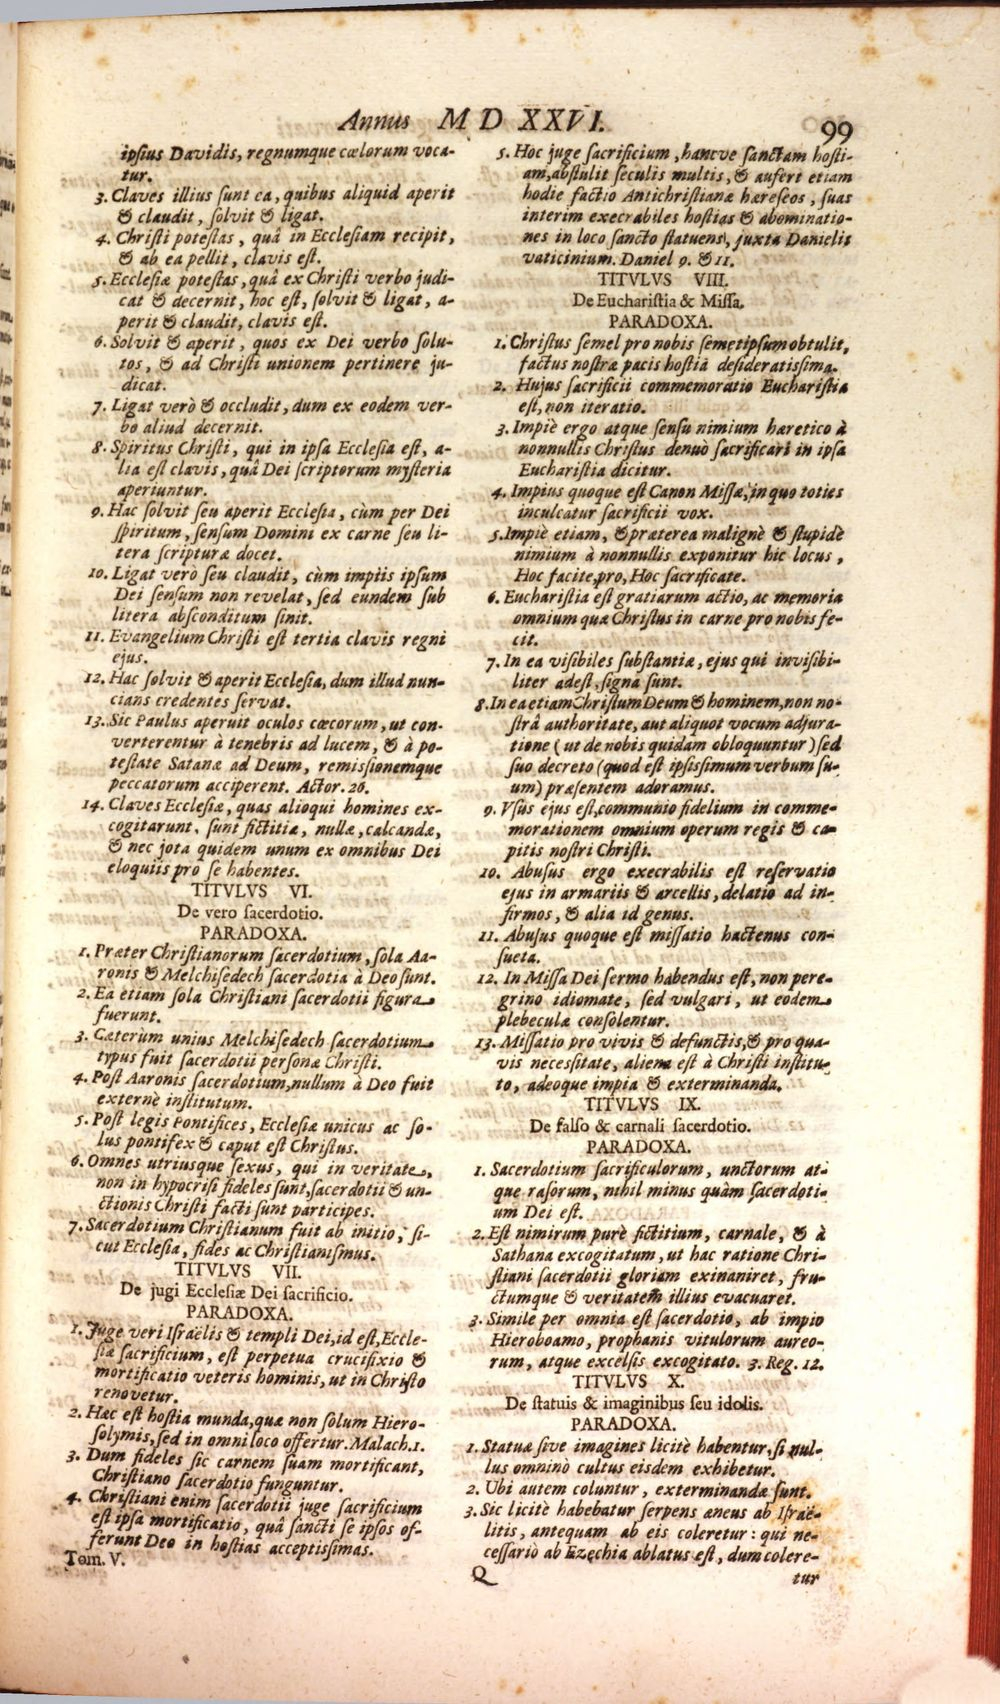 Annus M D XXVI. 99
ipsius Davidis, regnumque cœlorum voca-
tur.
3. Claves illius sunt ea, quibus aliquid aperit
& claudit, solvit & ligat.
4. Christi potestas, quâ in Ecclesiam recipit,
& ab ea pellit, clavis est.
5. Ecclesiæ potestas, quâ ex Christi verbo judi-
cat & decernit, hoc est, solvit & ligat, a-
perit & claudit, clavis est.
6. Solvit & aperit, quos ex Dei verbo solu-
tos, & ad Christi unionem pertinere ju-
dicat.
7. Ligat verò & occludit, dum ex eodem ver-
bo aliud decernit.
8. Spiritus Christi, qui in ipsa Ecclesia est, a-
lia est clavis, quâ Dei scriptorum mysteria
aperiuntur.
9. Hac solvit seu aperit Ecclesia, cùm per Dei
spiritum, sensum Domini ex carne seu li-
tera scripturæ docet.
10. Ligat verò seu claudit, cùm impiis ipsum
Dei sensum non revelat, sed eundem sub
litera absconditum sinit.
11. Evangelium Christi est tertia clavis regni
ejus.
12. Hac solvit & aperit Ecclesia, dum illud nun-
cians credentes servat.
13. Sic Paulus aperuit oculos cœcorum, ut con-
verterentur à tenebris ad lucem, & à po-
testate Satanæ ad Deum, remissionemque
peccatorum acciperent. Actor. 26.
14. Claves Ecclesiæ, quas alioqui homines ex-
cogitarunt, sunt fictitiæ, nullæ, calcandæ,
& nec jota quidem unum ex omnibus Dei
eloquiis pro se habentes.
TITVLVS VI.
De vero sacerdotio.
PARADOXA.
1. Præter Christianorum sacerdotium, sola Aa-
ronis & Melchisedech sacerdotia à Deo sunt.
2. Ea etiam sola Christiani sacerdotii figura
fuerunt.
3. Cæterùm unius Melchisedech sacerdotium
typus fuit sacerdotii personæ Christi.
4. Post Aaronis sacerdotium, nullum à Deo fuit
externè institutum.
5. Post legis Pontifices, Ecclesiæ unicus ac so-
lus pontifex & caput est Christus.
6. Omnes utriusque sexus, qui in veritate,
non in hypocrisi fideles sunt, sacerdotii & un-
ctionis Christi facti sunt participes.
7. Sacerdotium Christianum fuit ab initio, si-
cut Ecclesia, fides ac Christianismus.
TITVLVS VII.
De jugi Ecclesiæ Dei sacrificio.
PARADOXA.
1. Juge veri Israëlis & templi Dei, id est, Eccle-
siæ sacrificium, est perpetua crucifixio &
mortificatio veteris hominis, ut in Christo
renovetur.
2. Hæc est hostia munda, quæ non solum Hiero-
solymis, sed in omni loco offertur. Malach. 1.
3. Dum fideles sic carnem suam mortificant,
Christiano sacerdotio funguntur.
4. Christiani enim sacerdotii juge sacrificium
est ipsa mortificatio, quâ sancti se ipsos of-
ferunt Deo in hostias acceptissimas.
Tom. V.
5. Hoc juge sacrificium, hancve sanctam hosti-
am, abstulit seculis multis, & aufert etiam
hodie factio Antichristianæ hæreseos, suas
interim execrabiles hostias & abominatio-
nes in loco sancto statuens, juxta Danielis
vaticinium. Daniel 9. & 11.
TITVLVS VIII.
De Eucharistia & Missa.
PARADOXA.
1. Christus semel pro nobis semetipsum obtulit,
factus nostræ pacis hostia desideratissima.
2. Hujus sacrificii commemoratio Eucharistia
est, non iteratio.
3. Impiè ergo atque sensu nimium hæretico à
nonnullis Christus denuò sacrificari in ipsa
Eucharistia dicitur.
4. Impius quoque est Canon Missæ, in quo toties
inculcatur sacrificii vox.
5. Impiè etiam, & præterea malignè & stupidè
nimium à nonnullis exponitur hic locus,
Hoc facite, pro, Hoc sacrificate.
6. Eucharistia est gratiarum actio, ac memoria
omnium quæ Christus in carne pro nobis fe-
cit.
7. In ea visibiles substantiæ, ejus qui invisibi-
liter adest, signa sunt.
8. In ea etiam Christum Deum & hominem, non no-
strâ authoritate, aut aliquot vocum adjura-
tione (ut de nobis quidam obloquuntur) sed
suo decreto (quod est ipsissimum verbum su-
um) præsentem adoramus.
9. Vsus ejus est, communio fidelium in comme-
morationem omnium operum regis & ca-
pitis nostri Christi.
10. Abusus ergo execrabilis est reservatio
ejus in armariis & arcellis, delatio ad in-
firmos, & alia id genus.
11. Abusus quoque est missatio hactenus con-
sueta.
12. In Missa Dei sermo habendus est, non pere-
grino idiomate, sed vulgari, ut eodem
plebeculæ consolentur.
13. Missatio pro vivis & defunctis, & pro qua-
vis necessitate, aliena est à Christi institu-
to, adeoque impia & exterminanda.
TITVLVS IX.
De falso & carnali sacerdotio.
PARADOXA.
1. Sacerdotium sacrificulorum, unctorum at-
que rasorum, nihil minus quàm sacerdoti-
um Dei est.
2. Est nimirum purè fictitium, carnale, & à
Sathana excogitatum, ut hac ratione Chri-
stiani sacerdotii gloriam exinaniret, fru-
ctumque & veritatem illius evacuaret.
3. Simile per omnia est sacerdotio, ab impio
Hieroboamo, prophanis vitulorum aureo-
rum, atque excelsis excogitato. 3. Reg. 12.
TITVLVS X.
De statuis & imaginibus seu idolis.
PARADOXA.
1. Statuæ sive imagines licitè habentur, si nul-
lus omninò cultus eisdem exhibetur.
2. Ubi autem coluntur, exterminandæ sunt.
3. Sic licitè habebatur serpens æneus ab Israë-
litis, antequam ab eis coleretur: qui ne-
cessariò ab Ezechia ablatus est, dum colere-
Q tur